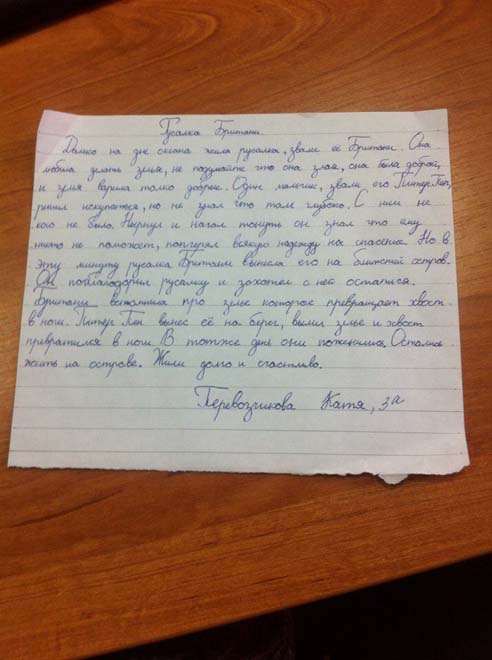 Русалка Британи.
Далеко на дне океана жила русалка, звали её Британи. Она
любила делать зелья, не подумайте что она злая, она была доброй,
и зелья варила только добрые. Один мальчик, звали его Питер Пен,
решил искупаться, но не знал что там глубоко. С ним не
кого не было. Нырнул и начал тонуть он знал что ему
никто не поможет, потерял всякую надежду на спасение. Но в
эту минуту русалка Британи вынесла его на ближний остров.
Он поблагодорил русалку и захотел с ней остатся.
Британи вспомнила про зелье которое превращает хвост
в ноги. Питер Пен вынес её на берег, вылил зелье и хвост
превратился в ноги. В тотже день они поженились. Остались
жить на острове. Жили долго и счастливо.
Перевозчикова Катя, 3а